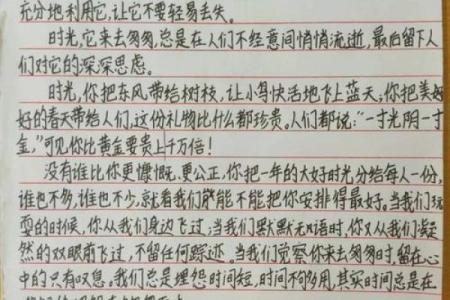 充分地利用它,让它不要轻易丢失。
时光,它来去匆匆,总是在人们不经意间悄悄流逝,最后留下人
们对它的深深思虑。
时光,你把东风带给树枝,让小鸟快活地飞上蓝天;你把美好
好的春天带给人们,这份礼物比什么都珍贵。人们都说:“一寸光阴一寸
金,”可见你比黄金要贵上千万倍!
没有谁比你更慷慨、更公正,你把一年的大好时光分给每人一份,
谁也不多,谁也不少,就看我们能不能把你安排得最好。当我们玩
耍的时候,你从我们身边飞过;当我们默默无语时,你又从我们凝
然的双眼前飞过,不留任何踪迹。当我们觉察你来去匆匆时,留在心
中的只有叹息。我们总是埋怨时间短,时间不够用,其实时间总是在